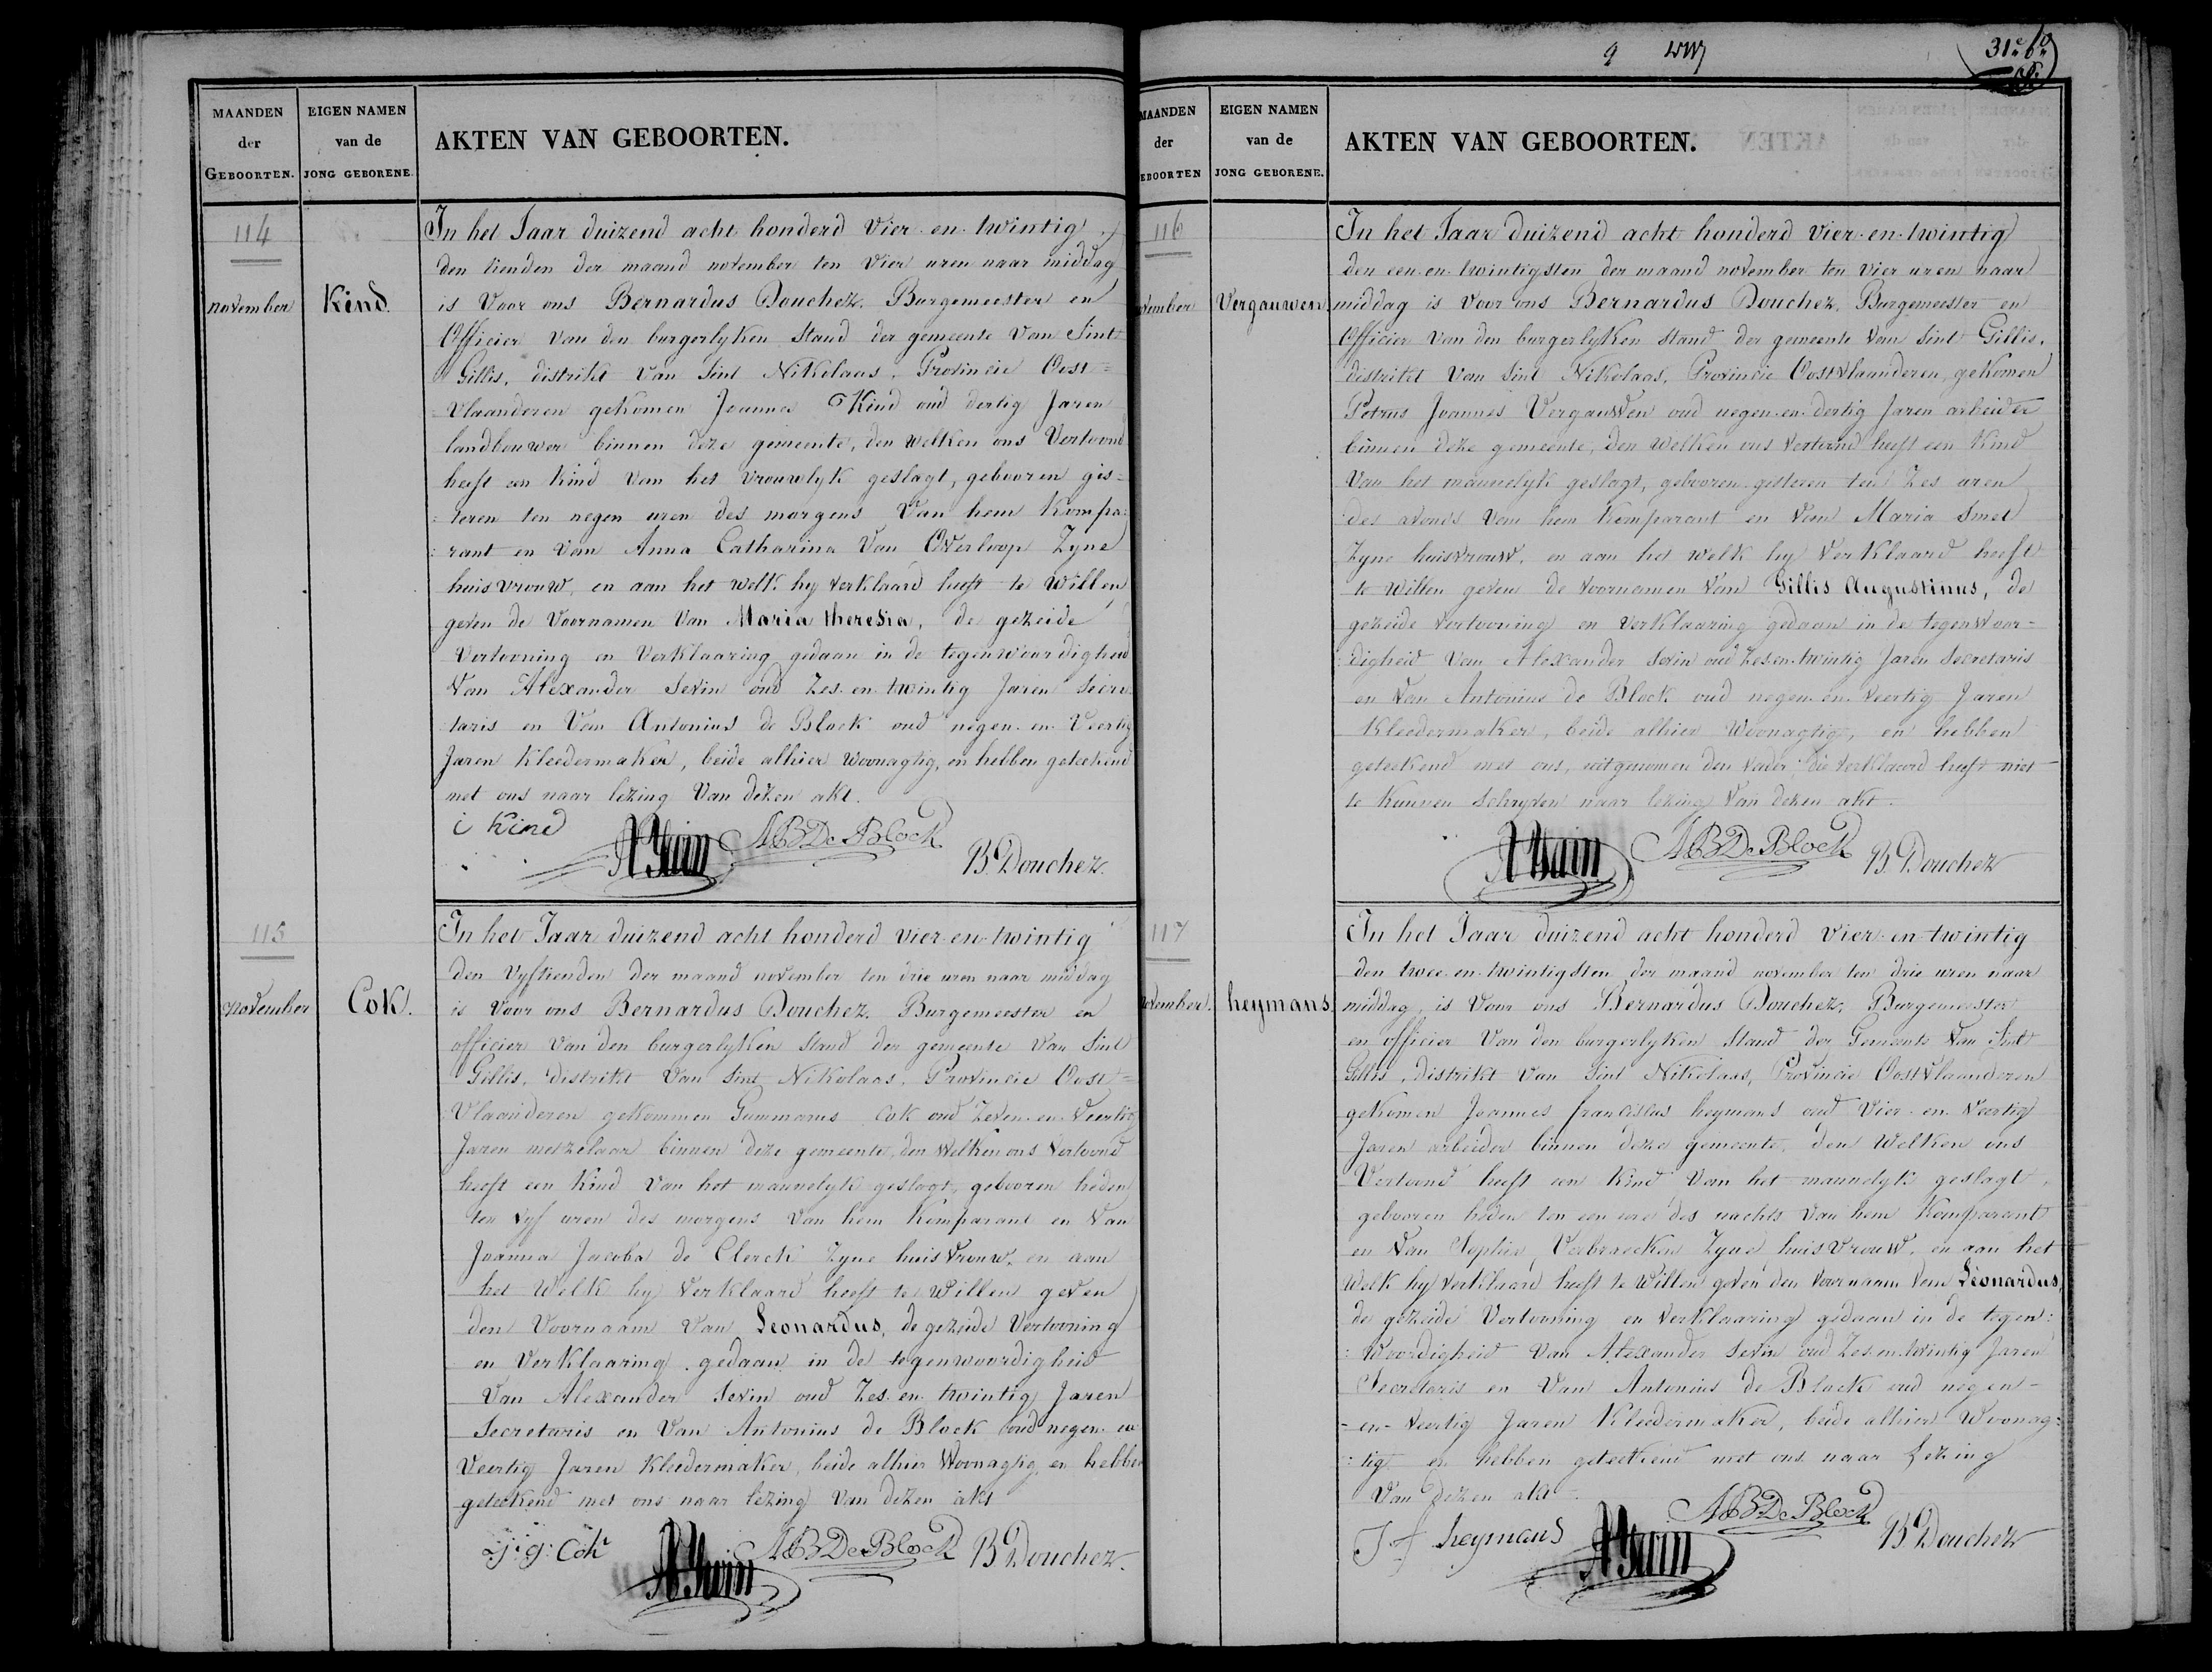 MAANDEN
der
GEBOORTEN.
EIGEN NAMEN
van de
JONG GEBORENE.
AKTEN VAN GEBOORTEN.
114
november
Kind.
In het Jaar duizend acht honderd vier en twintig
den tienden der maand november ten vier uren naar middag
is voor ons Bernardus Douchez. Burgemeester en
Officier van den burgerlyken stand der gemeente van Sint
Gillis, distrikt van Sint Nikolaas, Provincie Oost=
Vlaanderen gekomen Joannes Kind oud dertig Jaren
landbouwer binnen deze gemeente, den welken ons Vertoond
heeft een kind van het vrouwlyk geslagt, gebooren gis=
:teren ten negen uren des morgens van hem kompa:
:rant en van Anna Catharina Van Overloop Zyne
huisvrouw, en aan het welk hy verklaard heeft te willen
geven de Voornamen van Maria theresia, de gezeide
Vertooning en Verklaaring gedaan in de tegenwoordigheid
van Alexander Sevin oud Zes en twintig Jaren Secre
taris en van Antonius de Block oud negen en Veertig
Jaren kleedermaker, beide alhier woonagtig, en hebben geteekend
met ons naar lezing van dezen akt.
i Kind
ABDe Block
B Douchez
115
november
Cok.
In het Jaar duizend acht honderd vier en twintig
den vyftienden der maand november ten drie uren naar middag
is voor ons Bernardus Douchez. Burgemeester en
officier van den burgerlyken Stand der gemeente van Sint
Gillis, distrikt van Sint Nikolaas, Provincie Oost=
Vlaanderen gekommen Gummarus Cok oud Zeven en Veertig
Jaren metzelaar binnen deze gemeente, den welken ons vertoond
heeft een kind van het mannelyk geslagt, gebooren heden
ten vyf uren des morgens van hem komparant en van
Joanna Jacoba de Clerck Zyne huisvrouw, en aan
het welk hy verklaard heeft te willen geven
den Voornaam van Leonardus, de gezeide Vertooning
en Verklaaring gedaan in de tegenwoordigheid
van Alexander Sevin oud Zes en twintig Jaren
Secretaris en van Antonius de Block oud negen en
Veertig Jaren kleedermaker, beide alhier woonagtig, en hebben
geteekend met ons naar lezing van dezen akt
g: Cok
ABDe Block
B Douchez.
MAANDEN
der
EBOORTEN
EIGEN NAMEN
van de
JONG GEBORENE.
AKTEN VAN GEBOORTEN.
116
vember
Vergauwen
In het Jaar duizend acht honderd vier en twintig
den een en twintigsten der maand november ten vier uren naar
middag is voor ons Bernardus Douchez, Burgemeester en
Officier van den burgerlyken stand der gemeente van Sint Gillis.
distrikt van Sint Nikolaas, Provincie Oostvlaanderen, gekomen
Petrus Joannes Vergauwen oud negen en dertig Jaren arbeider
binnen deze gemeente, den welken ons vertoond heeft een kind
van het mannelyk geslagt, gebooren gisteren ten Zes uren
des avonds van hem komparant en van Maria Smet
Zyne huisvrouw, en aan het welk hy verklaard heeft
te willen geven de voornamen van Gillis Augustinus, de
gezeide vertooning en verklaaring gedaan in de tegenwoor=
digheid van Alexander Sevin oud Zes en twintig Jaren Secretaris
en van Antonius de Block oud negen en veertig Jaren
kleedermaker, beide alhier woonagtig, en hebben
geteekend met ons, uitgenomen den vader die verklaard heeft niet
te kunnen schryven naar lezing van dezen akt.
ABDe Block
B. Douchez
117
vember.
heymans
In het Jaar duizend acht honderd vier en twintig
den twee en twintigsten der maand november ten drie uren naar
middag, is voor ons Bernardus Douchez, Burgemeester
en officier van den burgerlyken Stand der Gemeente van Sint
Gillis, distrikt van Sint Nikolaas, Provincie Oostvlaanderen
gekomen Joannes franciscus heymans oud vier en veertig
Jaren arbeider binnen deze gemeente, den welken ons
Vertoond heeft een kind van het mannelyk geslagt,
gebooren heden ten een ure des nachts van hem komparant
en van Sophia Verbraecken Zyne huisvrouw, en aan het
welk hy verklaard heeft te willen geven den voornaam van Leonardus,
de gezeide Vertooning en verklaaring gedaan in de tegen:
:woordigheid van Alexander Sevin oud Zes en twintig Jaren
Secretaris en van Antonius de Block oud negen-
-en- veertig Jaren kleedermaker, beide alhier woonag:
:tig en hebben geteekend met ons naar Lezing
van dezen akt.
J f heymans
ABDe Block
B Douchez